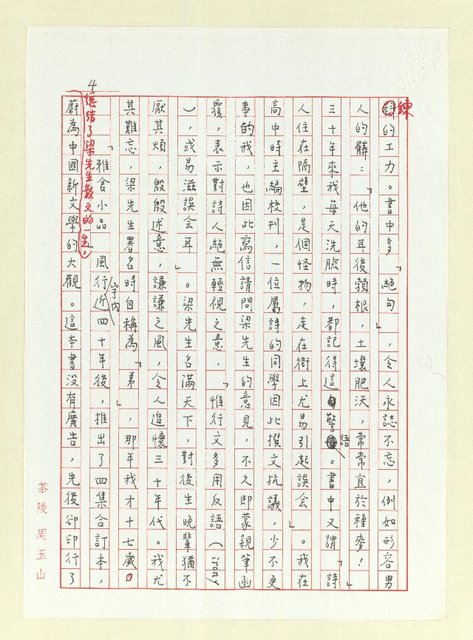 練的工力。書中多「絕句」,令人永誌不忘,例如形容男
人的髒:「他的耳後頸根,土壤肥沃,常常宜於種麥!」
三十年來我每天洗臉時,都記得這警語。書中又謂:「詩
人住在隔壁,是個怪物,走在街上尤易引起誤會。」我在
高中時主編校刊,一位寫詩的同學因此撰文抗議,少不更
事的我,也因此寫信請問梁先生的意見,不久即蒙親筆函
覆,表示對詩人絕無輕視之意,「惟行文多用反語(irony
),或易滋誤會耳」。梁先生名滿天下,對後生晚輩猶不
厭其煩,殷殷述意,謙謙之風,令人追懷三十年代。我尤
其難忘,梁先生署名時自稱為「弟」,那年我才十七歲。
「雅舍小品」風行宇內近四十年後,推出了四集合訂本,
總結了梁先生散文的一生,
蔚為中國新文學的大觀。這本書沒有廣告,先後卻印行了
4
茶陵 周玉山